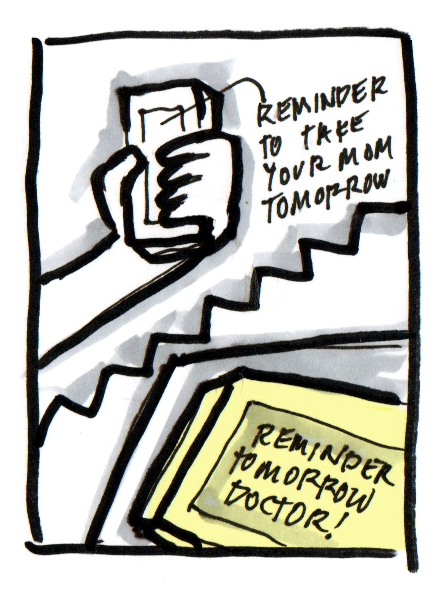 REMINDER
TO TAKE
YOUR MOM
TOMORROW
REMINDER
TOMORROW
DOCTOR!